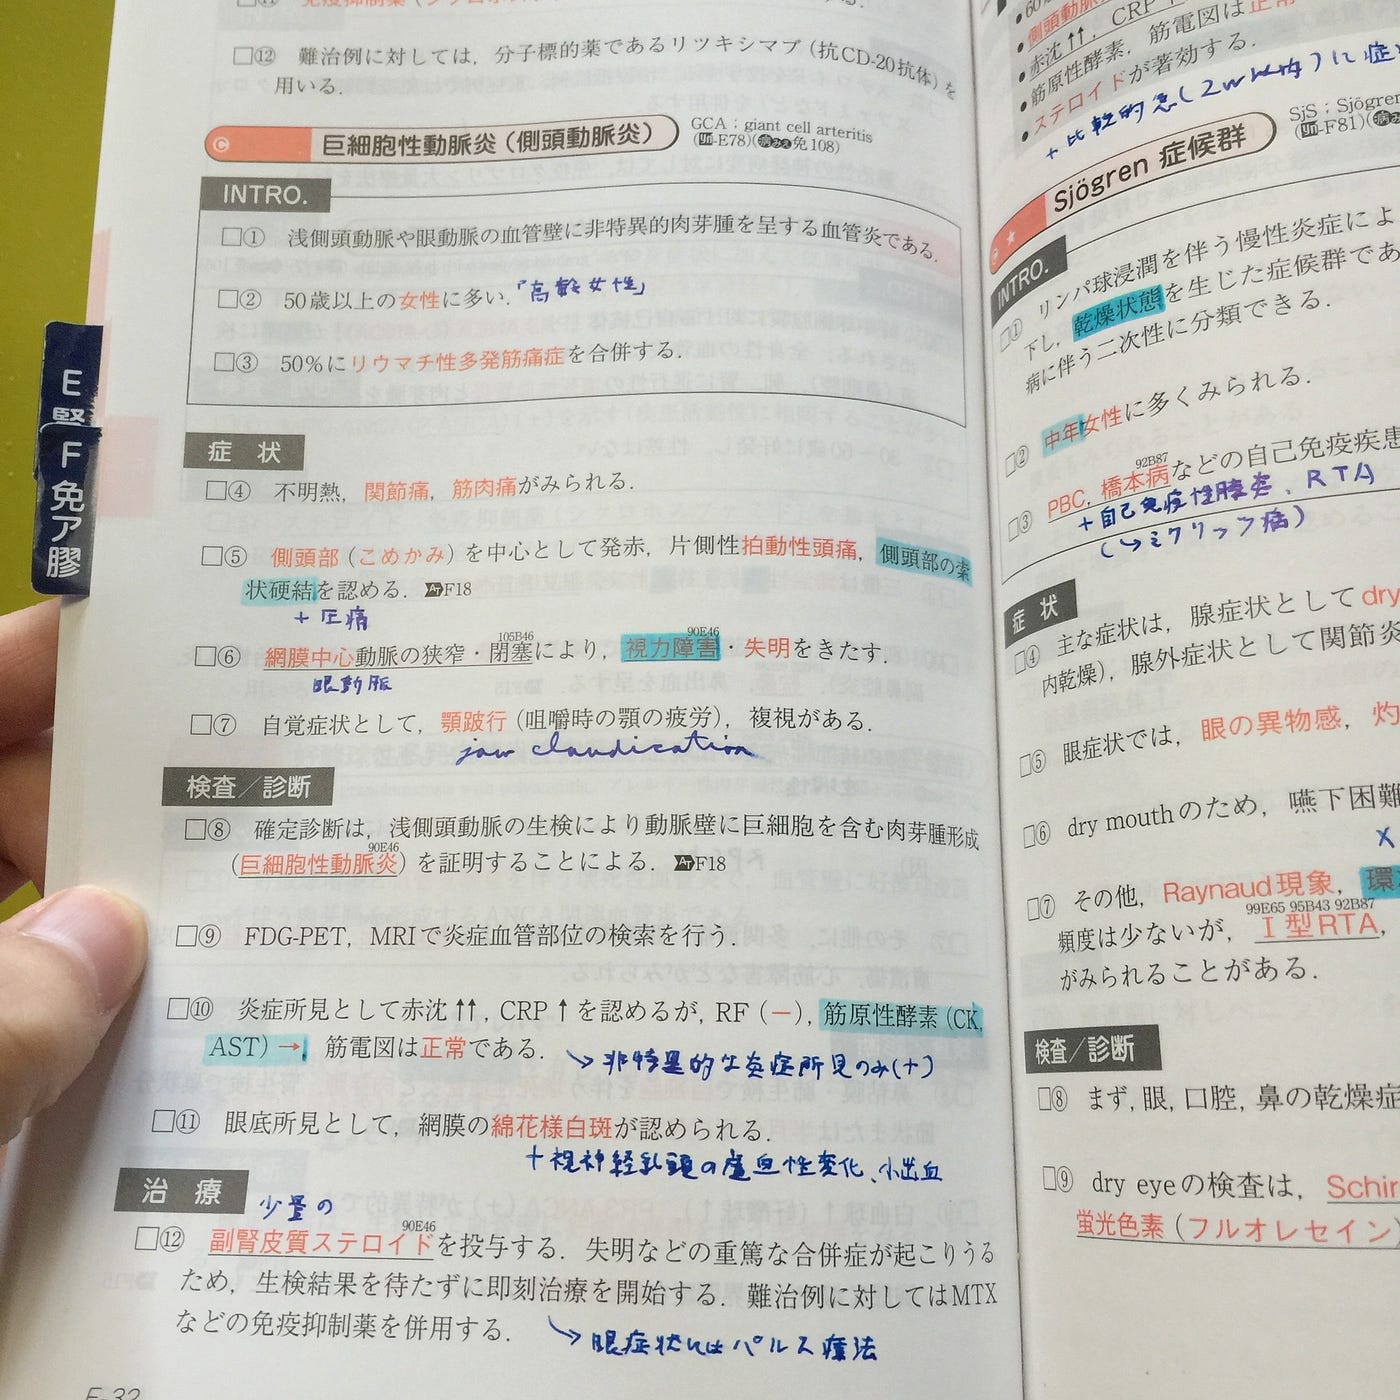 □⑫ 難治例に対しては，分子標的薬であるリツキシマブ（抗CD-20抗体）を
用いる．
C 巨細胞性動脈炎（側頭動脈炎） GCA：giant cell arteritis
(-E78)(病みえ免108)
INTRO.
□① 浅側頭動脈や眼動脈の血管壁に非特異的肉芽腫を呈する血管炎である．
□② 50歳以上の女性に多い．「高齢女性」
□③ 50％にリウマチ性多発筋痛症を合併する．
症 状
□④ 不明熱，関節痛，筋肉痛がみられる．
□⑤ 側頭部（こめかみ）を中心として発赤，片側性拍動性頭痛，側頭部の索
状硬結を認める．F18
＋圧痛
105B46 90E46
□⑥ 網膜中心動脈の狭窄・閉塞により，視力障害・失明をきたす．
眼動脈
□⑦ 自覚症状として，顎跛行（咀嚼時の顎の疲労），複視がある．
jaw claudication
検査／診断
□⑧ 確定診断は，浅側頭動脈の生検により動脈壁に巨細胞を含む肉芽腫形成
90E46
（巨細胞性動脈炎）を証明することによる．F18
□⑨ FDG-PET，MRIで炎症血管部位の検索を行う．
□⑩ 炎症所見として赤沈↑↑，CRP↑を認めるが，RF（－），筋原性酵素（CK,
AST）→，筋電図は正常である．
↘非特異的な炎症所見のみ(+)
□⑪ 眼底所見として，網膜の綿花様白斑が認められる．
＋視神経乳頭の虚血性変化、小出血
治 療
少量の
90E46
□⑫ 副腎皮質ステロイドを投与する．失明などの重篤な合併症が起こりうる
ため，生検結果を待たずに即刻治療を開始する．難治例に対してはMTX
などの免疫抑制薬を併用する．
↘眼症状にはパルス療法
F-32
E 腎
F 免ア膠
側頭動脈
赤沈↑↑，CRP
筋原性酵素，筋電図は正常
ステロイドが著効する．
＋比較的急(2w以内)に症
Sjögren 症候群 SjS：Sjögre
(-F81)(病みえ
INTRO.
□① リンパ球浸潤を伴う慢性炎症によ
下し，乾燥状態を生じた症候群であ
病に伴う二次性に分類できる．
□② 中年女性に多くみられる．
92B87
□③ PBC，橋本病などの自己免疫疾患
＋自己免疫性膵炎、RTA
(↳ミクリッツ病)
症 状
□④ 主な症状は，腺症状としてdry
内乾燥），腺外症状として関節炎
□⑤ 眼症状では，眼の異物感，灼
□⑥ dry mouthのため，嚥下困難
□⑦ その他，Raynaud現象，環
99E65 95B43 92B87
頻度は少ないが，Ⅰ型RTA，
がみられることがある．
検査／診断
□⑧ まず，眼，口腔，鼻の乾燥症
□⑨ dry eyeの検査は，Schir
蛍光色素（フルオレセイン）